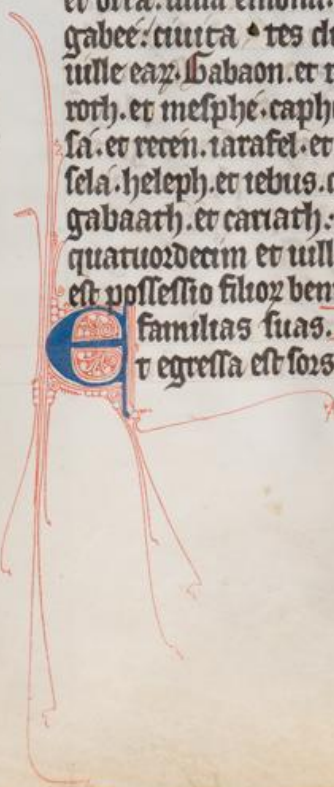 et
gabee. ciuita tes
uille eaꝝ. Gabaon. et
roth. et mesphe. caph
sa. et recen. iarafel. et
sela. heleph. et iebus.
gabaath. et cariath.
quatuordecim et uill
est possessio filioꝝ ben
familias suas.
Et egressa est sors